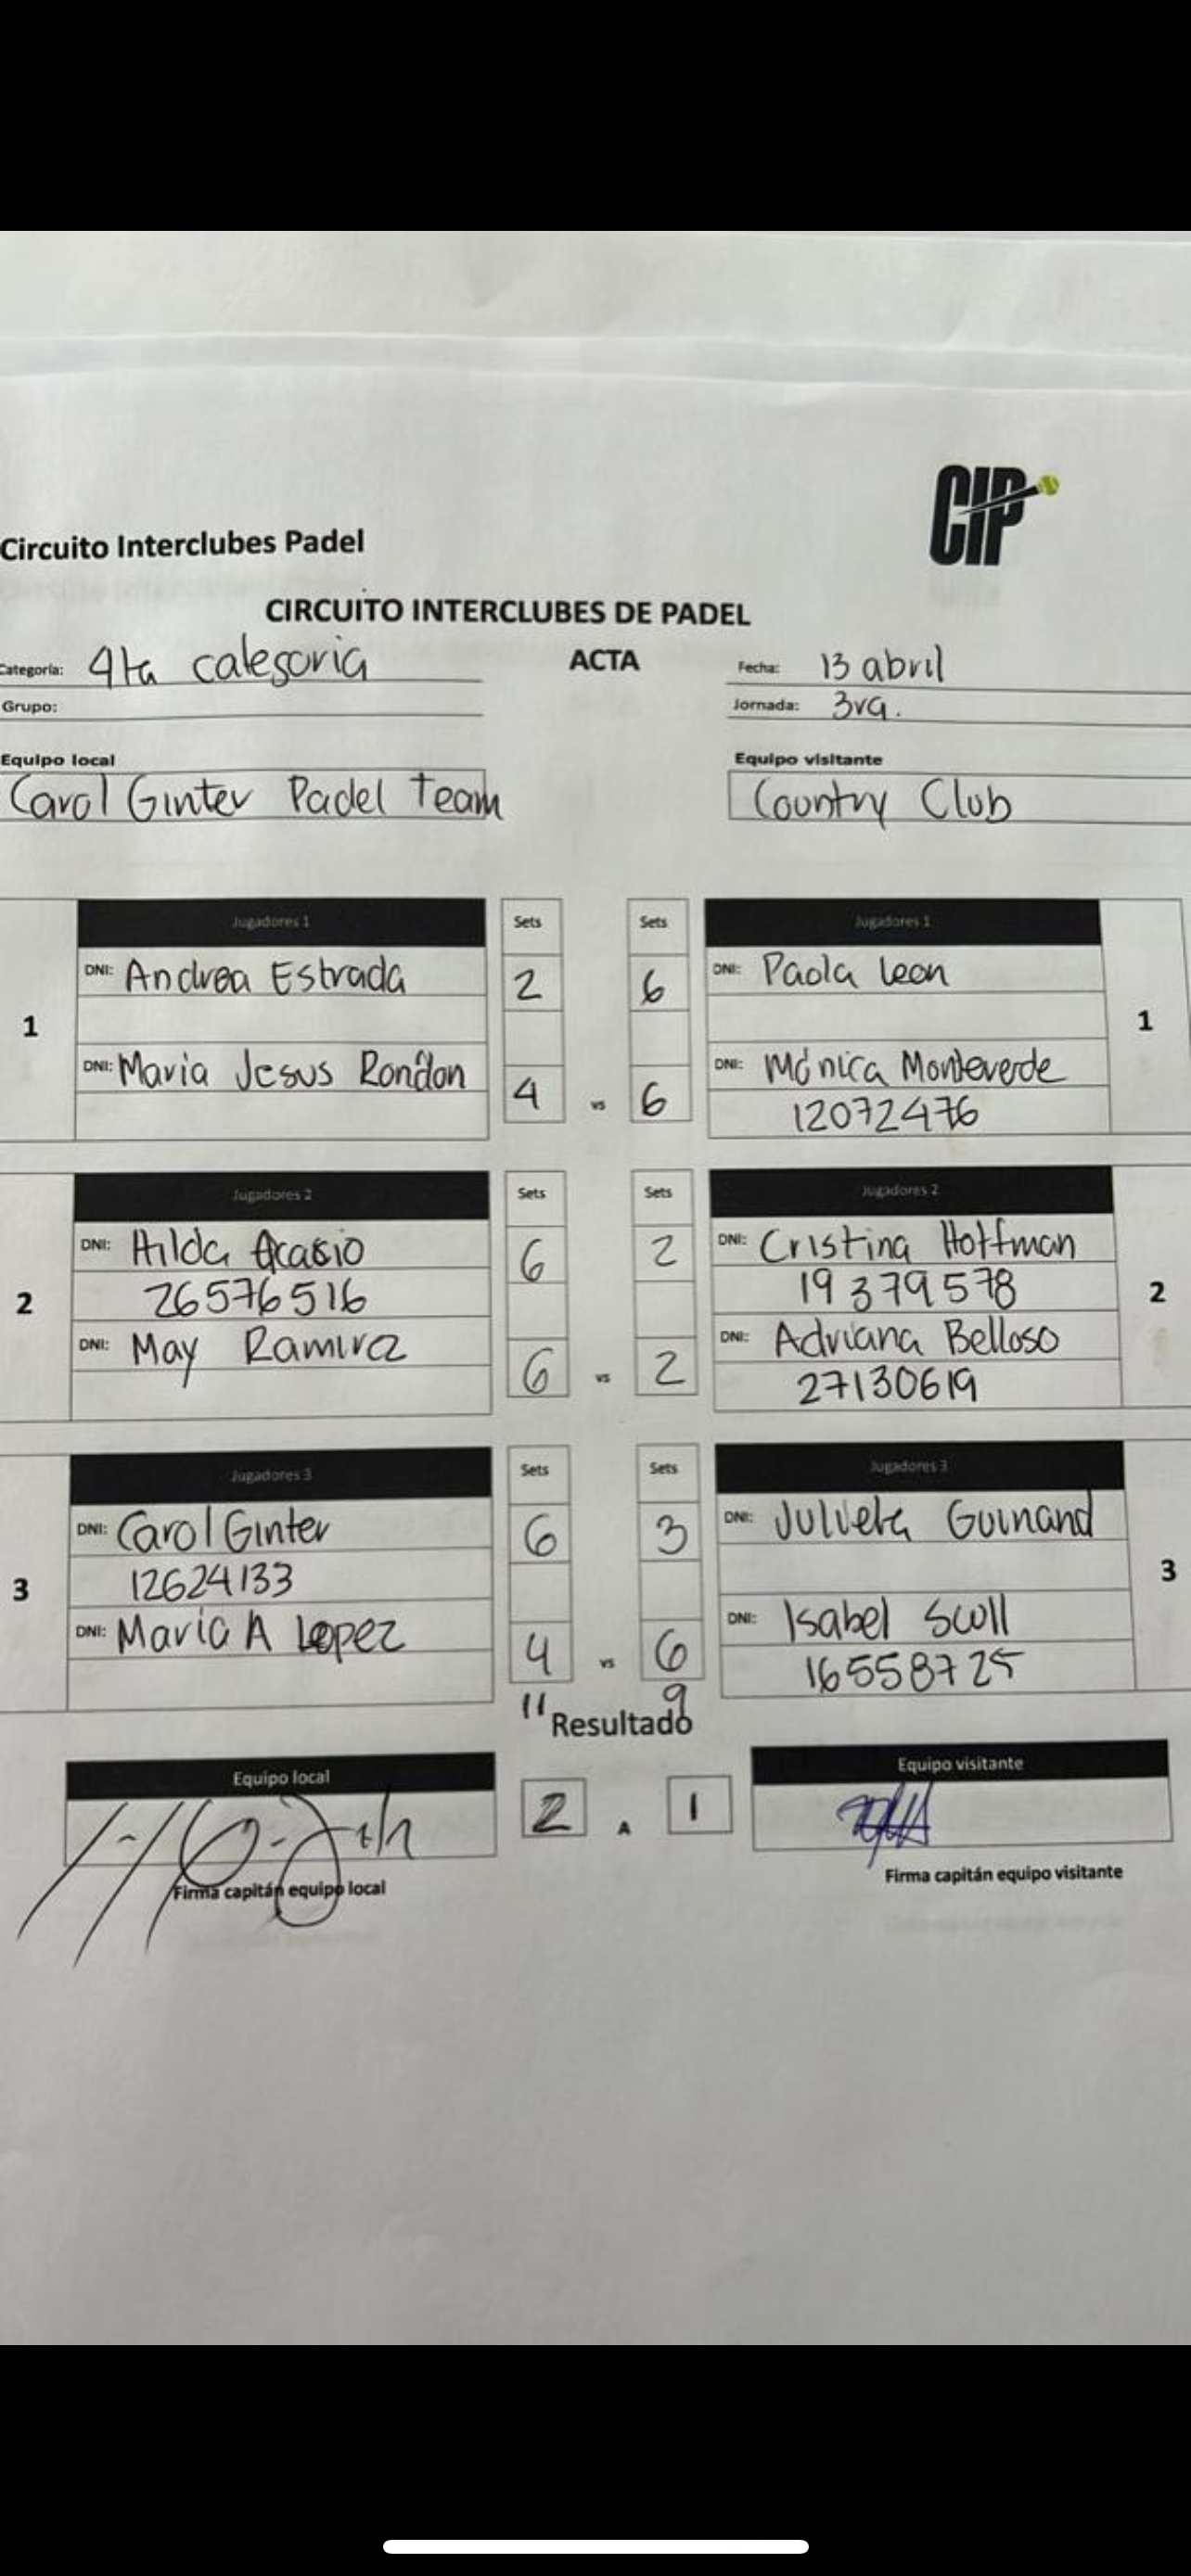 CIP
Circuito Interclubes Padel
CIRCUITO INTERCLUBES DE PADEL
Categoría: 4ta categoria ACTA Fecha: 13 abril
Grupo: Jornada: 3ra.
Equipo local Equipo visitante
Carol Ginter Padel Team Country Club
Jugadores 1 Sets Sets Jugadores 1
DNI: Andrea Estrada 2 6 DNI: Paola Leon
1 1
DNI: Maria Jesus Rondon 4 vs 6 DNI: Mónica Monteverde
12072476
Jugadores 2 Sets Sets Jugadores 2
DNI: Hilda Acasio 6 2 DNI: Cristina Hoffman
2 26576516 19379578 2
DNI: May Ramirez 6 vs 2 DNI: Adriana Belloso
27130619
Jugadores 3 Sets Sets Jugadores 3
DNI: Carol Ginter 6 3 DNI: Julieta Guinand
3 12624133 3
DNI: Maria A Lopez 4 vs 6 DNI: Isabel Scull
16558725
11 9
Resultado
Equipo local 2 A 1 Equipo visitante
Firma capitán equipo local Firma capitán equipo visitante